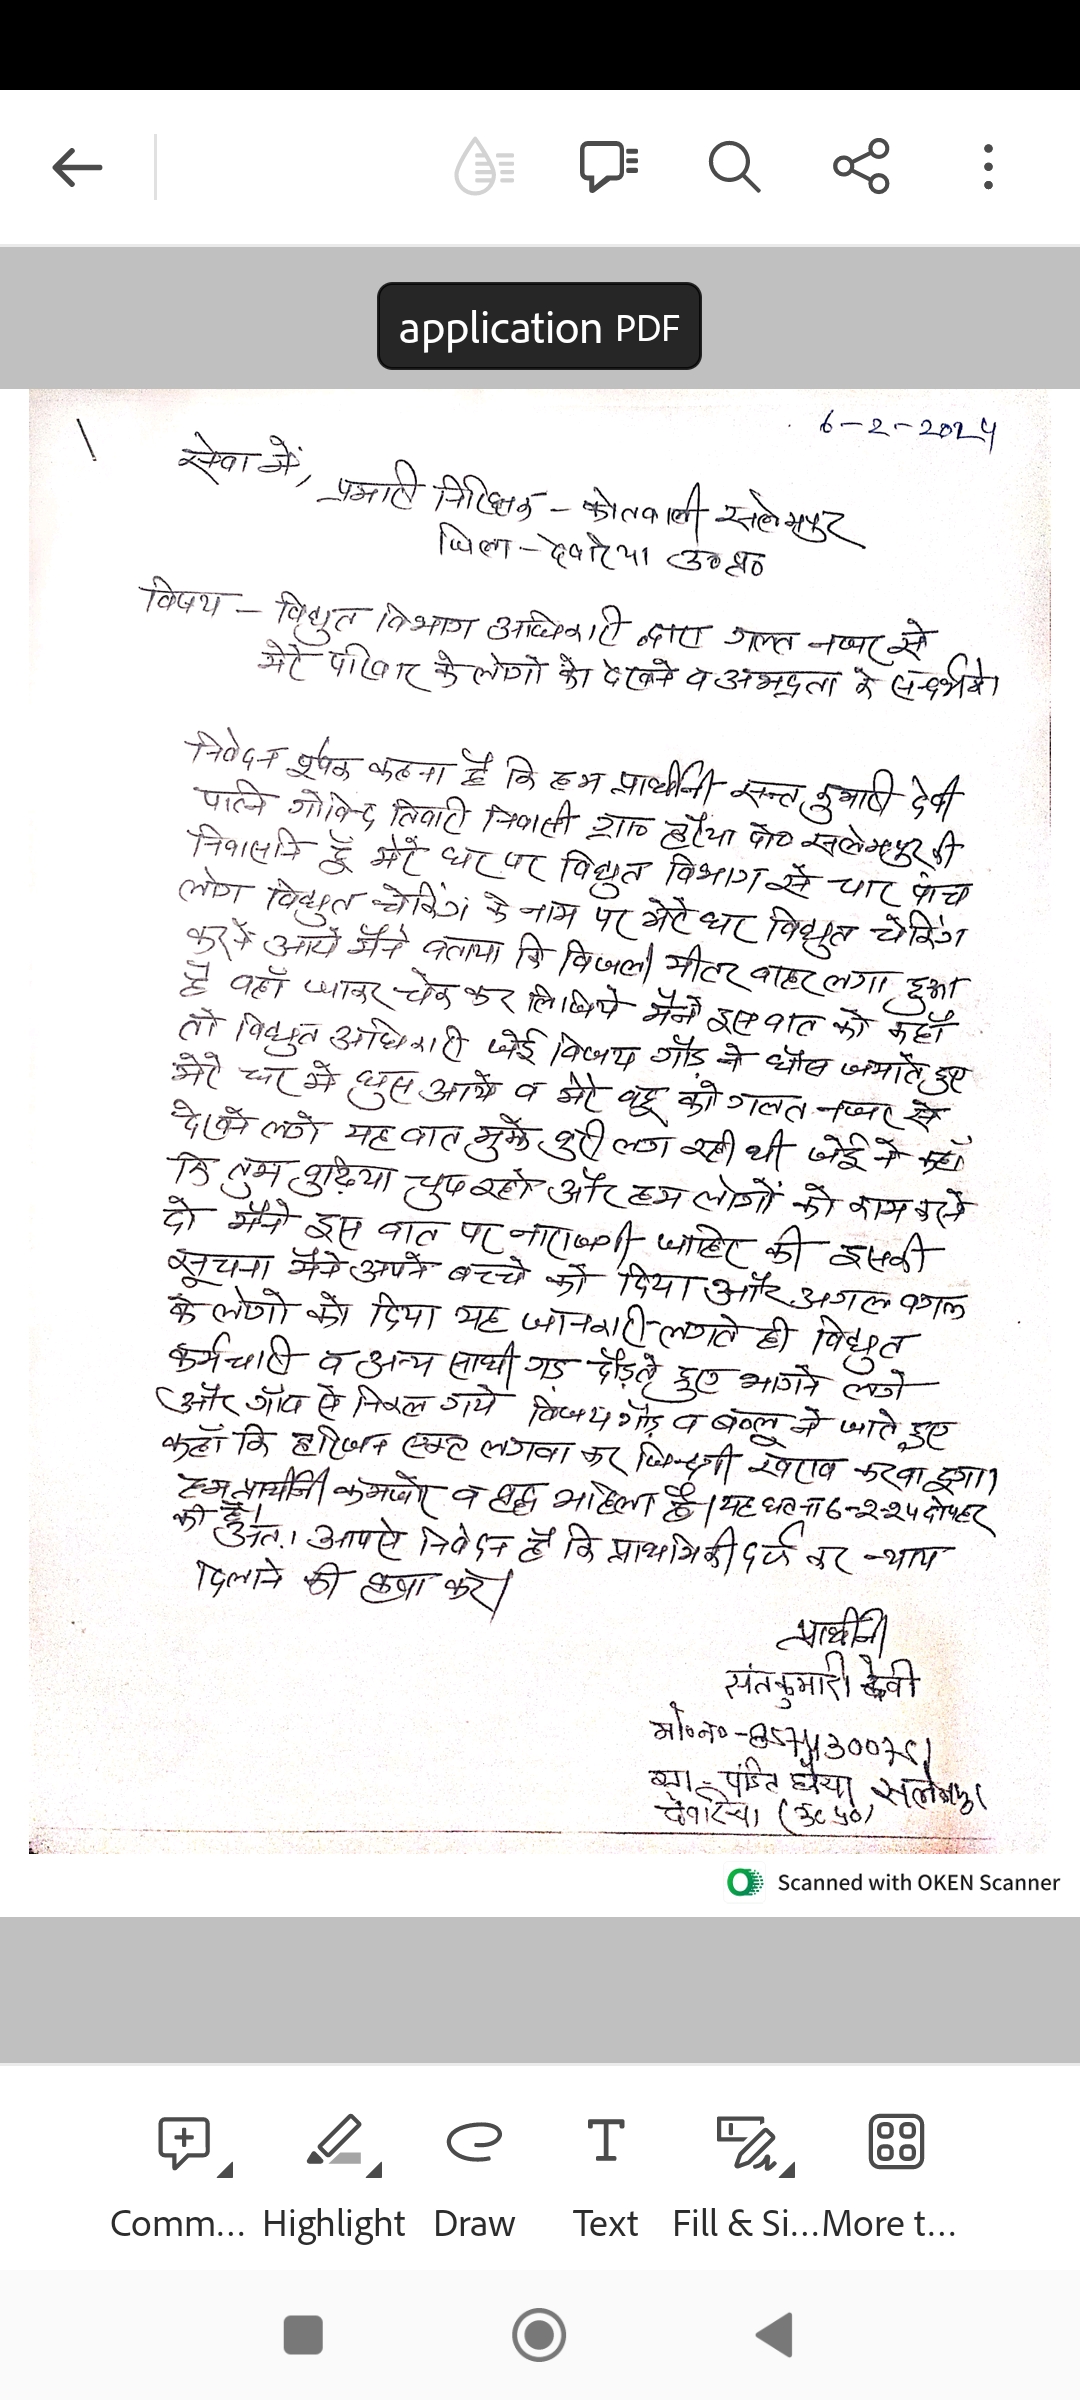 application PDF
6-2-2024
सेवा में,
प्रभारी निरिक्षक - कोतवाली सलेमपुर
जिला - देवरिया उ० प्र०
विषय - विद्युत विभाग अधिकारी द्वारा गलत नजर से
मेरे परिवार के लोगो को देखने व अभद्रता के सन्दर्भ में।
निवेदन पूर्वक कहना है कि हम प्रार्थीनी सन्त कुमारी देवी
पत्नि गोविन्द तिवारी निवासी ग्राम हरैया पो० सलेमपुर की
निवासनि हूँ मेरे घर पर विद्युत विभाग से चार पांच
लोग विद्युत चेकिंग के नाम पर मेरे घर विद्युत चेकिंग
करने आये मैने बताया कि बिजली मीटर बाहर लगा हुआ
है वहाँ जाकर चेक कर लिजिये मैने इस बात को कहाँ
तो विद्युत अधिकारी जेई विजय गौड ने धौस जमाते हुए
मेरे घर में घुस आये व मेरे बहू को गलत नजर से
देखने लगे यह बात मुझे बुरी लग रही थी जेई ने कहाँ
कि तुम बुढ़िया चुप रहो और हम लोगों को काम करने
दो मैने इस बात पर नाराजगी जाहिर की इसकी
सूचना मैने अपने बच्चे को दिया और अगल बगल
के लोगो को दिया यह जानकारी लगते ही विद्युत
कर्मचारी व अन्य साथी गड़ दौड़ते हुए भागने लगे
और गाँव से निकल गये विजय गौड़ व बबलू ने जाते हुए
कहाँ कि हरिजन एक्ट लगवा कर जिन्दगी खराब करवा दूगा।
हम प्रार्थीनी कमजोर व वृद्ध महिला है। यह घटना 6-2-24 दोपहर
की है।
अत। आपसे निवेदन है कि प्राथमिकी दर्ज कर न्याय
दिलाने की कृपा करे।
प्रार्थीनी
संतकुमारी देवी
मो०न० -
ग्रा - पंडित हरैया सलेमपुर
देवरिया (उ० प्र०)
Scanned with OKEN Scanner
Comm... Highlight Draw Text Fill & Si... More t...